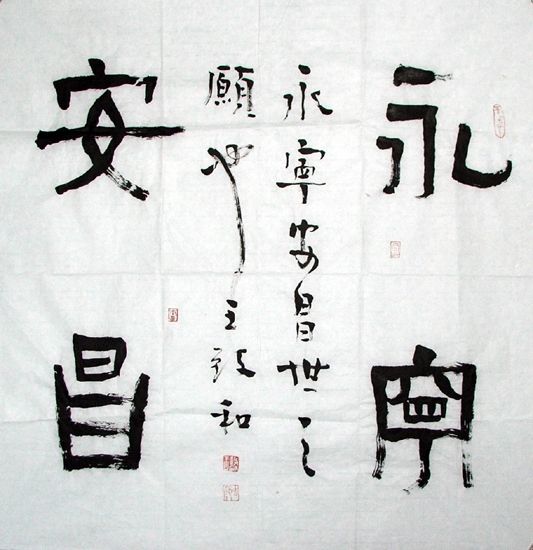 永寧
永寧安昌世之
願也 王毅和
安昌